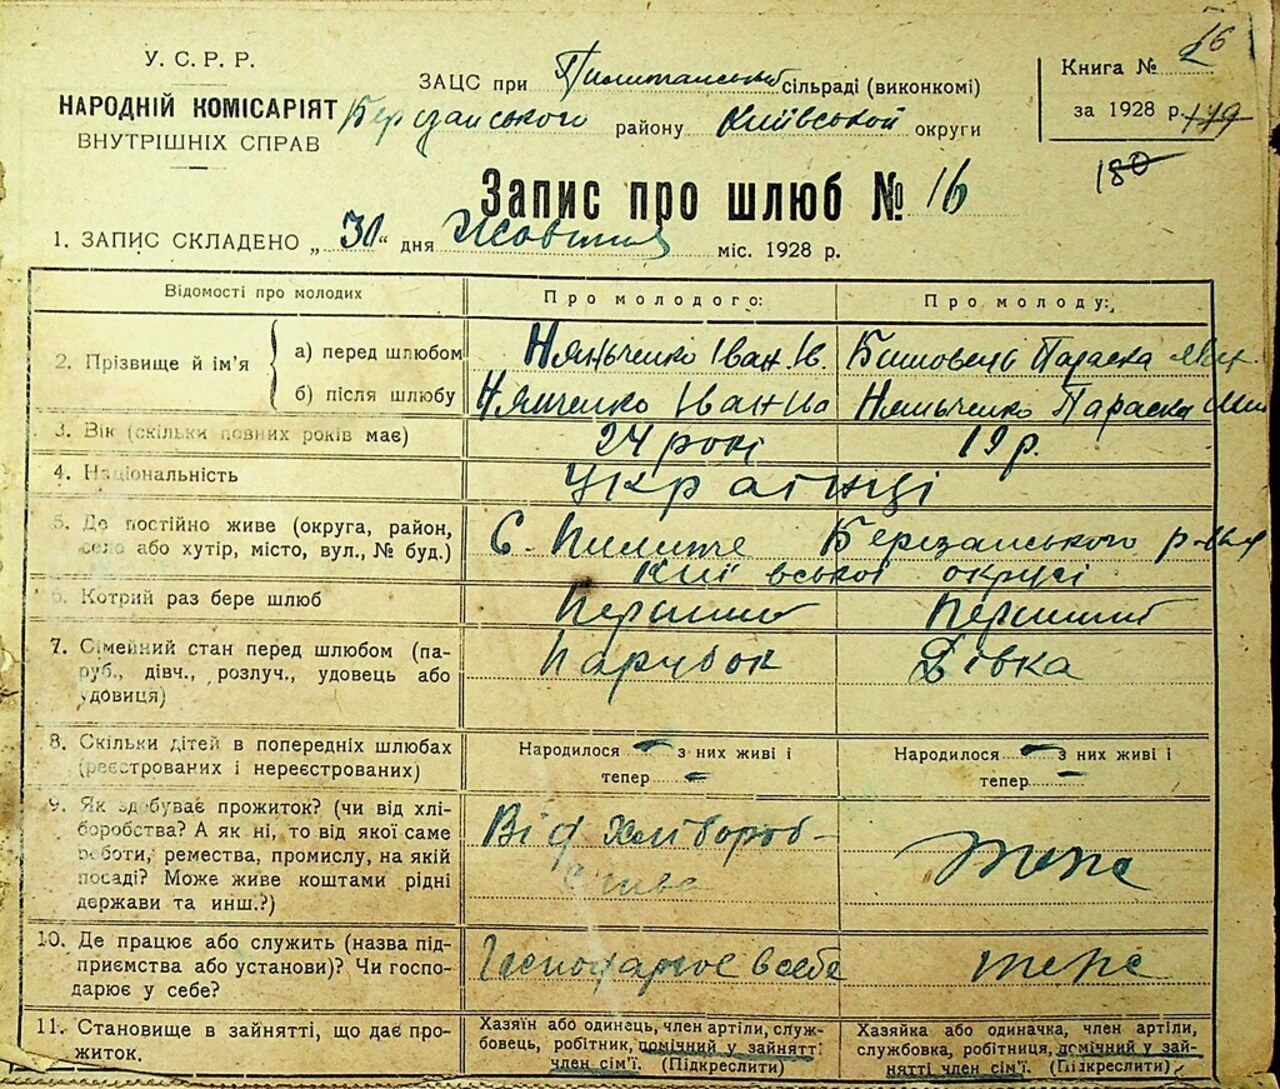 26
У. С. Р. Р.
НАРОДНІЙ КОМІСАРІЯТ
ВНУТРІШНІХ СПРАВ
ЗАЦС при сільраді (виконкомі)
Березанського району Київської округи
Книга №
за 1928 р. 179
180
Запис про шлюб № 16
1. ЗАПИС СКЛАДЕНО „30“ дня Жовтня міс. 1928 р.
Відомості про молодих
Про молодого:
Про молоду:
2. Прізвище й ім’я
а) перед шлюбом
Няньченко Іван Ів.
Параска
б) після шлюбу
Нянченко Іван Іва
Няньченко Параска
3. Вік (скільки повних років має)
24 рокі
19 р.
4. Національність
Українці
5. Де постійно живе (округа, район,
село або хутір, місто, вул., № буд.)
С. Пилипче Березанського р-ня
Київської округі
6. Котрий раз бере шлюб
Перший
Перший
7. Сімейний стан перед шлюбом (па-
руб., дівч., розлуч., удовець або
удовиця)
Парубок
Дівка
8. Скільки дітей в попередніх шлюбах
(реєстрованих і нереєстрованих)
Народилося - з них живі і
тепер -
Народилося - з них живі і
тепер -
9. Як здобуває прожиток? (чи від хлі-
боробства? А як ні, то від якої саме
роботи, ремества, промислу, на якій
посаді? Може живе коштами рідні
держави та инш.?)
Від хлібороб-
ства
теж
10. Де працює або служить (назва під-
приємства або установи)? Чи госпо-
дарює у себе?
Господарює в себе
теж
11. Становище в зайнятті, що дає про-
житок.
Хазяїн або одинець, член артіли, служ-
бовець, робітник, помічний у зайнятті
член сім’ї. (Підкреслити)
Хазяйка або одиначка, член артіли,
службовка, робітниця, помічний у зай-
нятті член сім’ї. (Підкреслити)